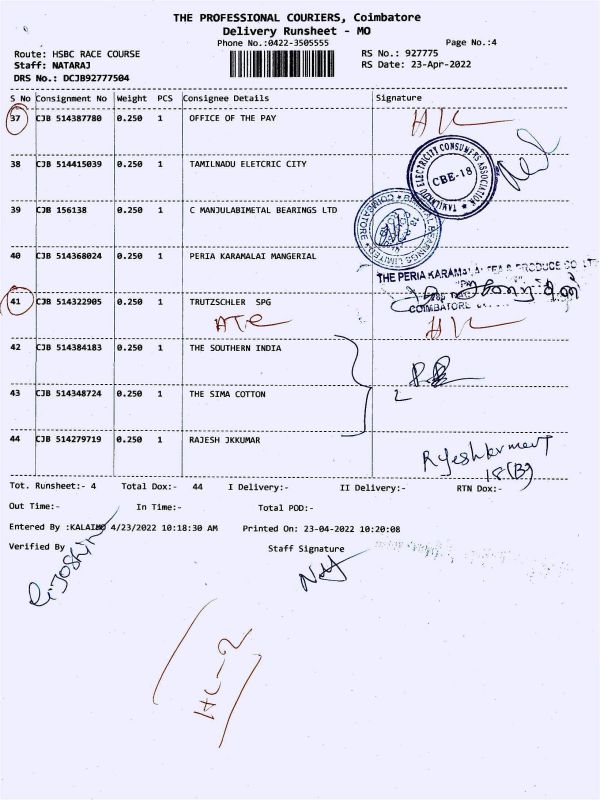 THE PROFESSIONAL COURIERS, Coimbatore
Delivery Runsheet - MO
Phone No.:0422-3505555
Page No.:4
Route: HSBC RACE COURSE
RS No.: 927775
Staff: NATARAJ
RS Date: 23-Apr-2022
DRS No.: DCJB92777504
S No Consignment No Weight PCS Consignee Details Signature
37 CJB 514387780 0.250 1 OFFICE OF THE PAY
38 CJB 514415039 0.250 1 TAMILNADU ELETCRIC CITY
TAMILNADU ELECTRICITY CONSUMERS ASSOCIATION
CBE-18
39 CJB 156138 0.250 1 C MANJULABIMETAL BEARINGS LTD
BEARINGS LIMITED COIMBATORE
40 CJB 514368024 0.250 1 PERIA KARAMALAI MANGERIAL
THE PERIA KARAMALAI TEA & PRODUCE CO LT
COIMBATORE
41 CJB 514322905 0.250 1 TRUTZSCHLER SPG
42 CJB 514384183 0.250 1 THE SOUTHERN INDIA
43 CJB 514348724 0.250 1 THE SIMA COTTON
2
44 CJB 514279719 0.250 1 RAJESH JKKUMAR
18(B)
Tot. Runsheet:- 4 Total Dox:- 44 I Delivery:- II Delivery:- RTN Dox:-
Out Time:- In Time:- Total POD:-
Entered By :KALAIMO 4/23/2022 10:18:30 AM Printed On: 23-04-2022 10:20:08
Verified By Staff Signature